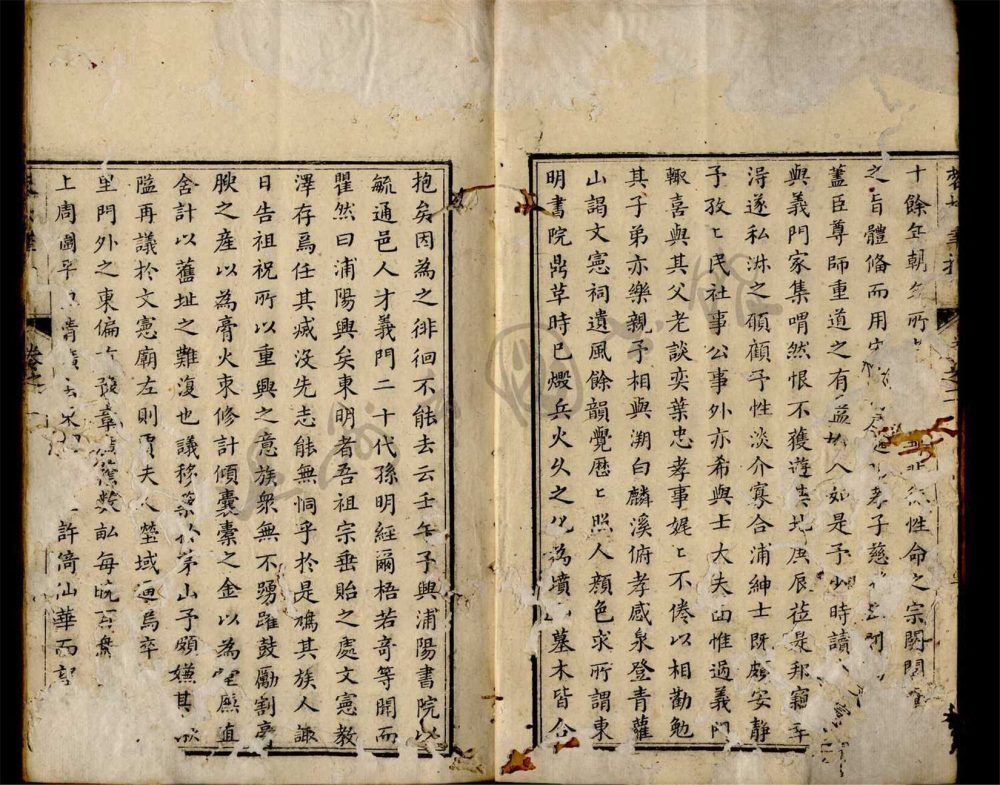 十餘年朝 所 性命之宗閼閩
之旨體脩而用 孝子慈
蓋臣尊師重道之有益 人如是予少時讀
與義門家集喟然恨不獲遊其地庚辰蒞是邦竊幸
淂遂私淑之碩顧予性淡介寡合浦紳士既頗安靜
予孜〻民社事公事外亦希與士大夫面惟過義門
輙喜與其父老談奕葉忠孝事娓〻不倦以相勸勉
其子弟亦樂親予相與溯白麟溪俯孝感泉登青蘿
山謁文憲祠遺風餘韻覺歷〻照人顏色求所謂東
明書院鼎草時已燬兵火久之化為墳 墓木皆合
抱矣因為之徘徊不能去云壬午予興浦陽書院以
毓通邑人才義門二十代孫明經爾梧若竒等聞而
瞿然曰浦陽興矣東明者吾祖宗垂貽之處文憲教
澤存焉任其烕没先志能無恫乎於是率其族人諏
日告祖祝所以重興之意族衆無不踴躍鼓勵割亭
腴之產以為膏火束修計傾囊橐之金以為 値
舍計以舊址之難復也議移築於茅山予頗嫌其
隘再議於文憲廟左則賈夫人塋域逼焉卒
里門外之東偏 数畝每
上周圖平 許淌汕華而